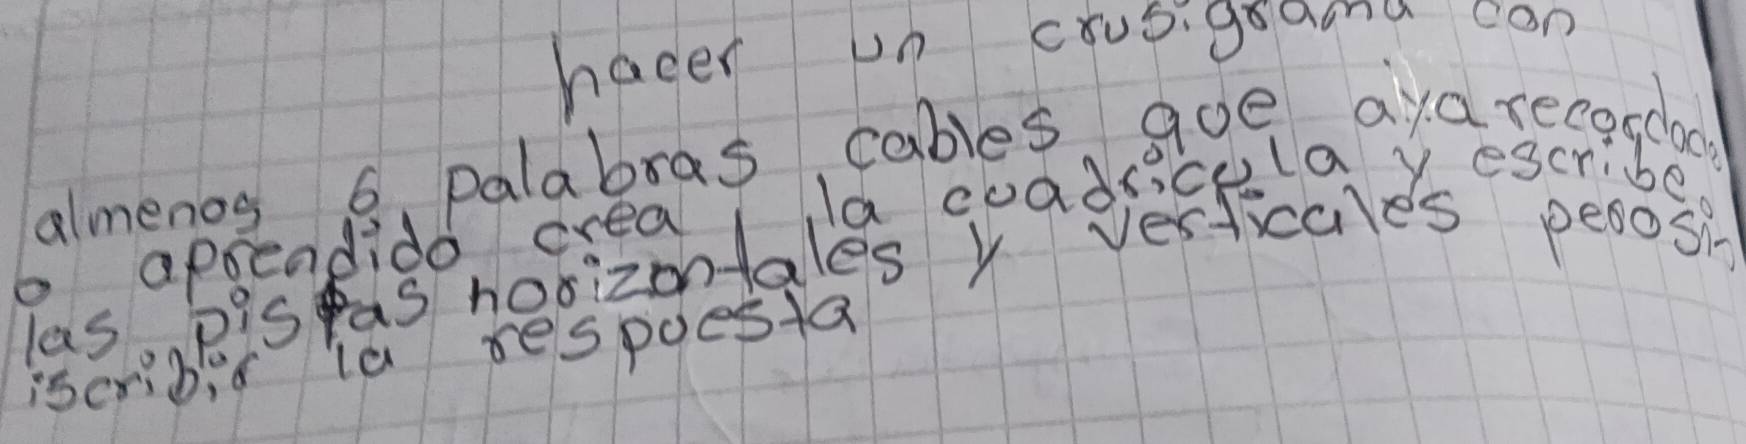 hacer un crusigrama con
almenos 6 palabras cables qoe aya recordado
o aprendido crea la coadricula y escribe
las pistas horizontales y verticales perosin
iscribir la respoesta